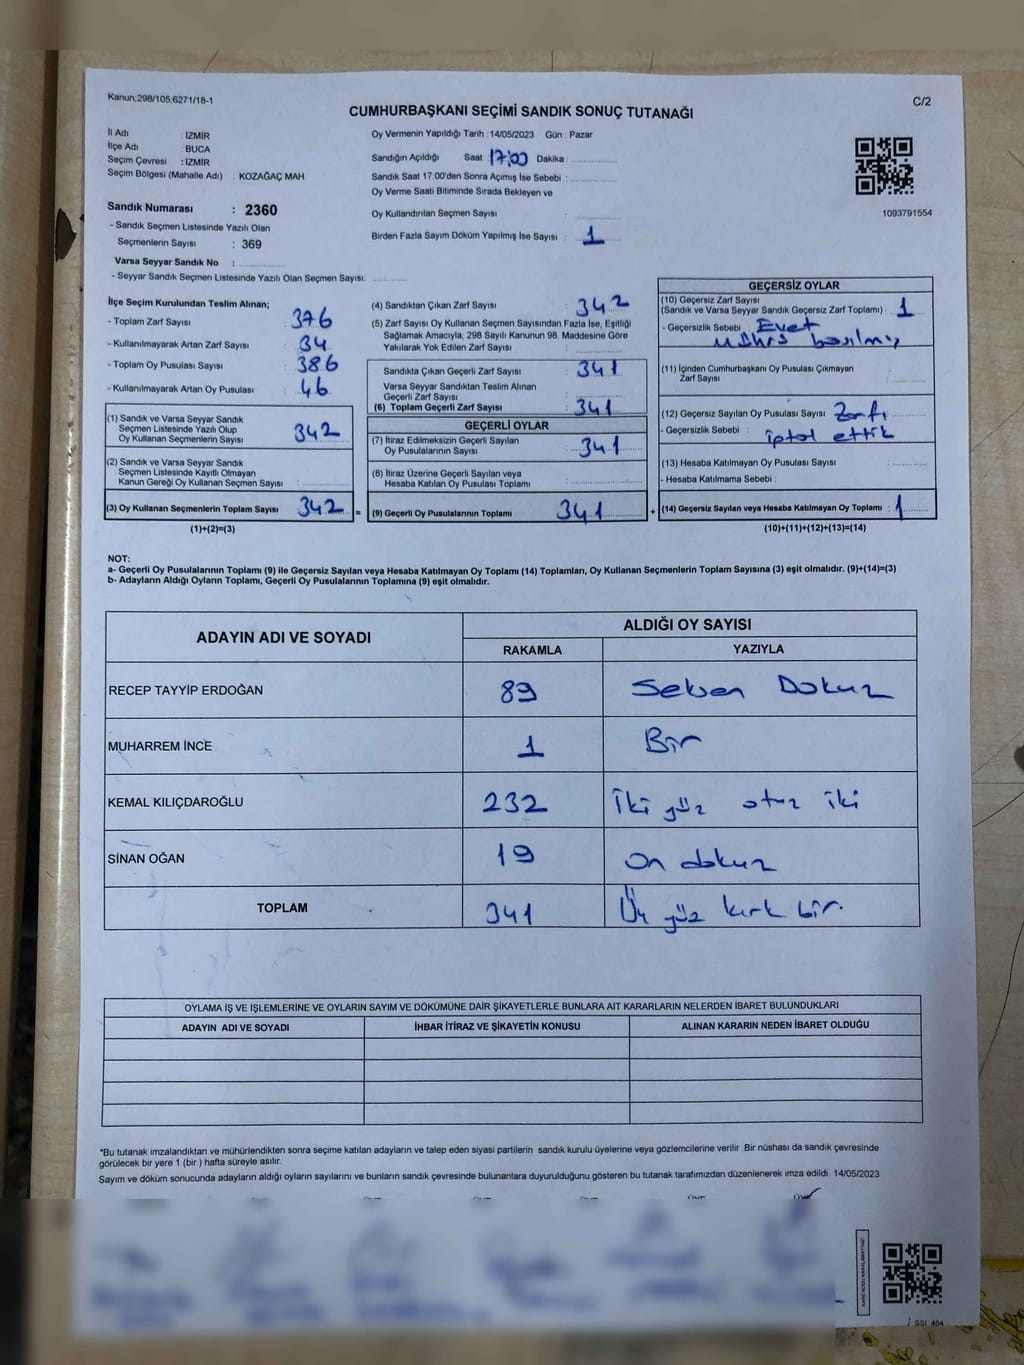 Kanun;298/105,6271/18-1
C/2
CUMHURBAŞKANI SEÇİMİ SANDIK SONUÇ TUTANAĞI
İl Adı : İZMİR
İlçe Adı : BUCA
Seçim Çevresi : İZMİR
Seçim Bölgesi (Mahalle Adı) : KOZAĞAÇ MAH
Sandık Numarası : 2360
- Sandık Seçmen Listesinde Yazılı Olan
Seçmenlerin Sayısı : 369
Varsa Seyyar Sandık No :
- Seyyar Sandık Seçmen Listesinde Yazılı Olan Seçmen Sayısı:
Oy Vermenin Yapıldığı Tarih : 14/05/2023 Gün : Pazar
Sandığın Açıldığı Saat : 17:00 Dakika :
Sandık Saat 17:00'den Sonra Açımış İse Sebebi :
Oy Verme Saati Bitiminde Sırada Bekleyen ve
Oy Kullandırılan Seçmen Sayısı :
Birden Fazla Sayım Döküm Yapılmış İse Sayısı : 1
1093791554
İlçe Seçim Kurulundan Teslim Alınan;
- Toplam Zarf Sayısı : 376
- Kullanılmayarak Artan Zarf Sayısı : 34
- Toplam Oy Pusulası Sayısı : 386
- Kullanılmayarak Artan Oy Pusulası : 46
(1) Sandık ve Varsa Seyyar Sandık
Seçmen Listesinde Yazılı Olup
Oy Kullanan Seçmenlerin Sayısı : 342
(2) Sandık ve Varsa Seyyar Sandık
Seçmen Listesinde Kayıtlı Olmayan
Kanun Gereği Oy Kullanan Seçmen Sayısı :
(3) Oy Kullanan Seçmenlerin Toplam Sayısı : 342 =
(1)+(2)=(3)
(4) Sandıktan Çıkan Zarf Sayısı : 342
(5) Zarf Sayısı Oy Kullanan Seçmen Sayısından Fazla İse, Eşitliği
Sağlamak Amacıyla, 298 Sayılı Kanunun 98. Maddesine Göre
Yakılarak Yok Edilen Zarf Sayısı :
Sandıkta Çıkan Geçerli Zarf Sayısı : 341
Varsa Seyyar Sandıktan Teslim Alınan
Geçerli Zarf Sayısı :
(6) Toplam Geçerli Zarf Sayısı : 341
GEÇERLİ OYLAR
(7) İtiraz Edilmeksizin Geçerli Sayılan
Oy Pusulalarının Sayısı : 341
(8) İtiraz Üzerine Geçerli Sayılan veya
Hesaba Katılan Oy Pusulası Toplamı :
(9) Geçerli Oy Pusulalarının Toplamı : 341 +
GEÇERSİZ OYLAR
(10) Geçersiz Zarf Sayısı
(Sandık ve Varsa Seyyar Sandık Geçersiz Zarf Toplamı) : 1
- Geçersizlik Sebebi : Evet
(11) İçinden Cumhurbaşkanı Oy Pusulası Çıkmayan
Zarf Sayısı :
(12) Geçersiz Sayılan Oy Pusulası Sayısı : Zarfı
- Geçersizlik Sebebi : iptal ettik
(13) Hesaba Katılmayan Oy Pusulası Sayısı :
- Hesaba Katılmama Sebebi :
(14) Geçersiz Sayılan veya Hesaba Katılmayan Oy Toplamı : 1
(10)+(11)+(12)+(13)=(14)
NOT:
a- Geçerli Oy Pusulalarının Toplamı (9) ile Geçersiz Sayılan veya Hesaba Katılmayan Oy Toplamı (14) Toplamları, Oy Kullanan Seçmenlerin Toplam Sayısına (3) eşit olmalıdır. (9)+(14)=(3)
b- Adayların Aldığı Oyların Toplamı, Geçerli Oy Pusulalarının Toplamına (9) eşit olmalıdır.
ADAYIN ADI VE SOYADI
ALDIĞI OY SAYISI
RAKAMLA YAZIYLA
RECEP TAYYİP ERDOĞAN 89 Seksen Dokuz
MUHARREM İNCE 1 Bir
KEMAL KILIÇDAROĞLU 232 İki yüz otuz iki
SİNAN OĞAN 19 On dokuz
TOPLAM 341 Üç yüz kırk bir.
OYLAMA İŞ VE İŞLEMLERİNE VE OYLARIN SAYIM VE DÖKÜMÜNE DAİR ŞİKAYETLERLE BUNLARA AİT KARARLARIN NELERDEN İBARET BULUNDUKLARI
ADAYIN ADI VE SOYADI İHBAR İTİRAZ VE ŞİKAYETİN KONUSU ALINAN KARARIN NEDEN İBARET OLDUĞU
*Bu tutanak imzalandıktan ve mühürlendikten sonra seçime katılan adayların ve talep eden siyasi partilerin sandık kurulu üyelerine veya gözlemcilerine verilir .Bir nüshası da sandık çevresinde
görülecek bir yere 1 (bir ) hafta süreyle asılır.
Sayım ve döküm sonucunda adayların aldığı oyların sayılarını ve bunların sandık çevresinde bulunanlara duyurulduğunu gösteren bu tutanak tarafımızdan düzenlenerek imza edildi. 14/05/2023
KARE KODU KARALAMAYINIZ!
/ SSI_404